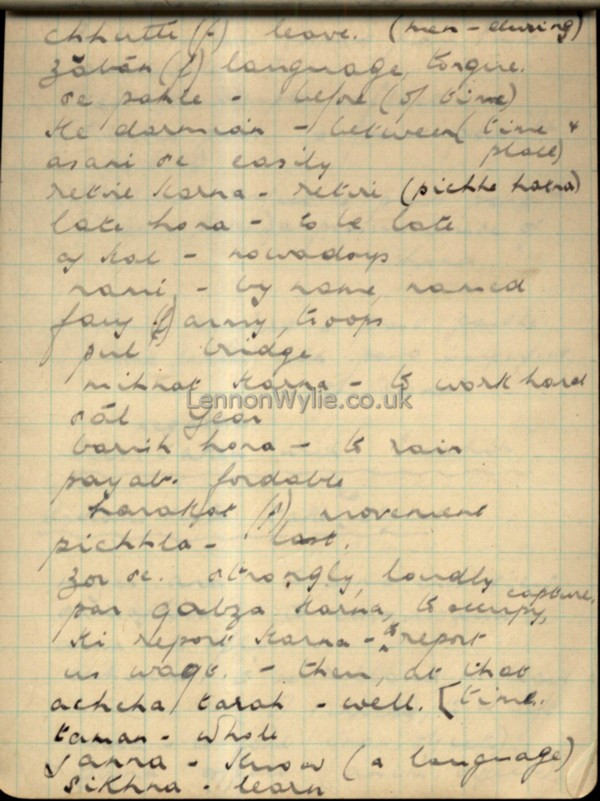 chhutti (f) leave. (men - during)
zăbān (f) language, tongue.
se pahle - before (of time)
ke darmian - between (time &
place)
asani se easily
retire karna - retire (pichhe hatna)
late hona - to be late
aj kal - nowadays
nami - by name, named
fauj (f) army, troops
pul bridge
mihnat karna - to work hard
LennonWylie.co.uk
sāl year
barish hona - to rain
payab. fordable
harakat (f) movement
pichhla - last.
zor se. strongly, loudly
par qabza karna, to occupy, capture.
ki report karna - to report
us waqt. - then, at that
achcha tarah - well. [time.
tamam - whole
janna - know (a language)
sikhna - learn